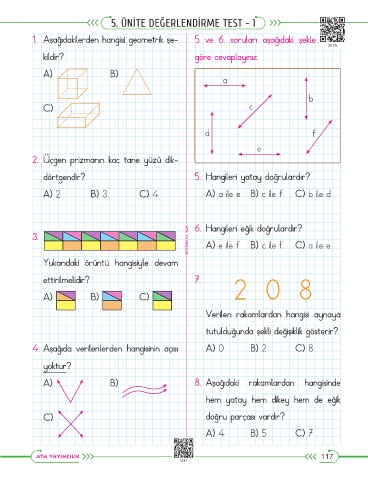 5. ÜNİTE DEĞERLENDİRME TEST - 1
1. Aşağıdakilerden hangisi geometrik şe-
kildir?
A)
B)
C)
2. Üçgen prizmanın kaç tane yüzü dik-
dörtgendir?
A) 2 B) 3 C) 4
3.
Yukarıdaki örüntü hangisiyle devam
ettirilmelidir?
A) B) C)
4. Aşağıda verilenlerden hangisinin açısı
yoktur?
A)
B)
C)
5 ve 6. soruları aşağıdaki şekle
göre cevaplayınız.
a
b
c
d
f
e
5. Hangileri yatay doğrulardır?
A) a ile e B) c ile f C) b ile d
6. Hangileri eğik doğrulardır?
A) e ile f B) c ile f C) a ile e
7.
2 0 8
Verilen rakamlardan hangisi aynaya
tutulduğunda şekli değişiklik gösterir?
A) 0 B) 2 C) 8
8. Aşağıdaki rakamlardan hangisinde
hem yatay hem dikey hem de eğik
doğru parçası vardır?
A) 4 B) 5 C) 7
ATA YAYINCILIK
117